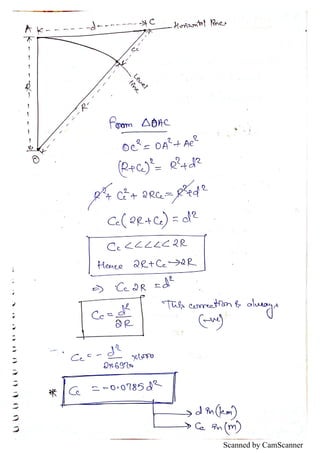 A K - - - - d - - - - → C → Horizontal line
Cc
Level line
R
R
O
From △OAC
OC² = OA² + AC²
(R+Cc)² = R² + d²
R² + Cc² + 2RCc = R² + d²
Cc(2R+Cc) = d²
Cc <<<<< 2R
Hence 2R+Cc → 2R
⇒ Cc 2R = d²
Cc = d²/2R
This correction is always (-ve)
∴ Cc = - d²/2×6970 ×1000
* Cc = -0.0785d²
→ d in (km)
→ Cc in (m)
Scanned by CamScanner